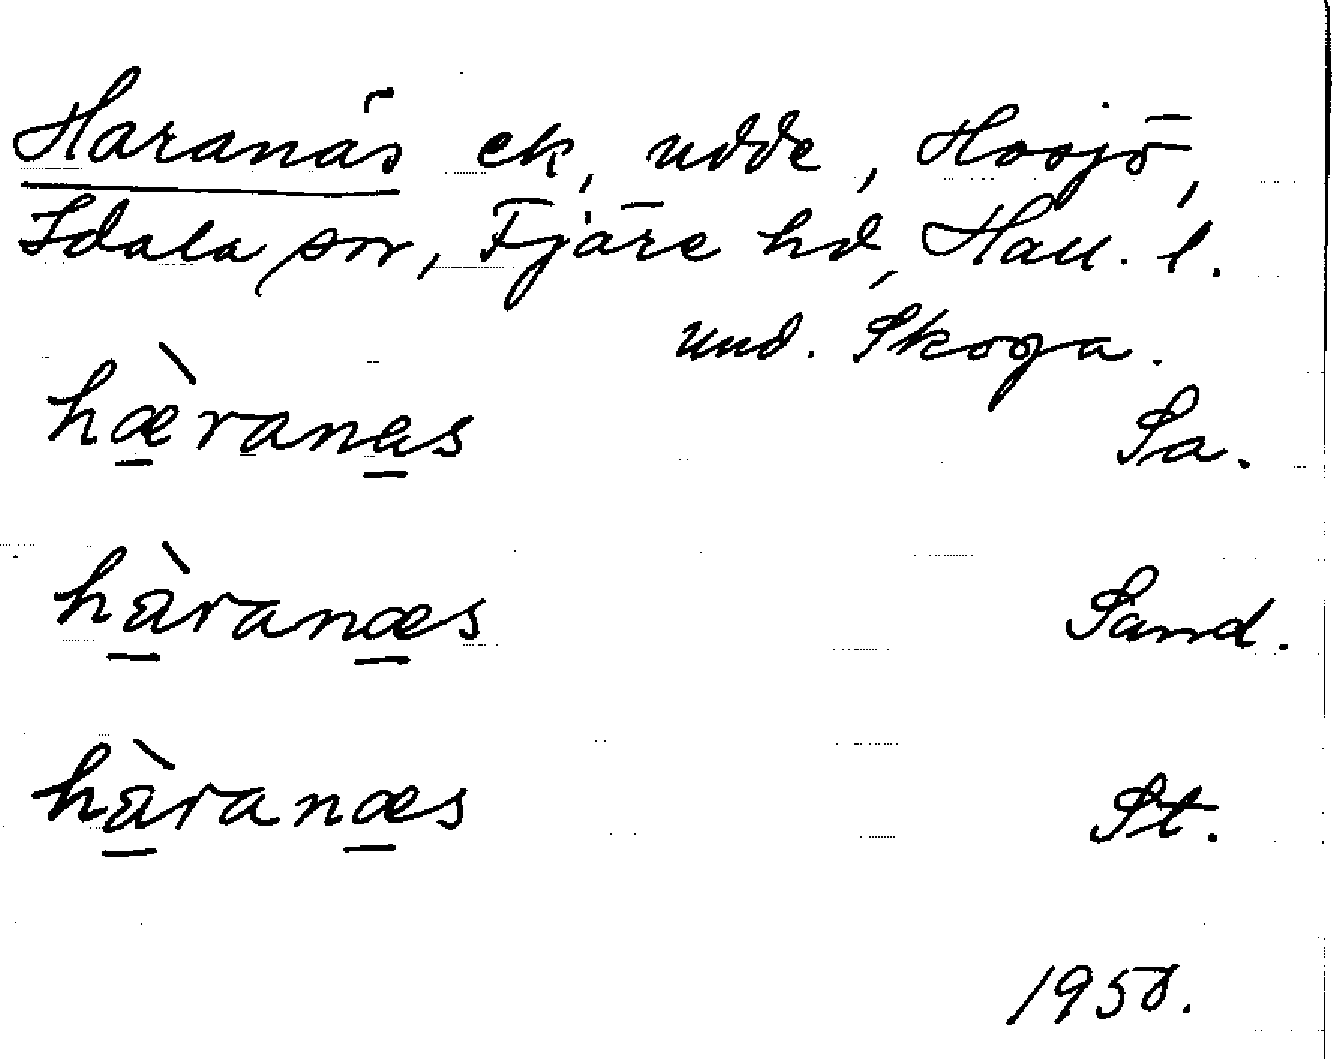 Haranäs ek, udde, Horjö,
Idala sn, Fjäre hd, Hall. l.
und. Skoga.
hæ̀ranas Sa.
hàranæs Sand.
hàranæs St.
1958.